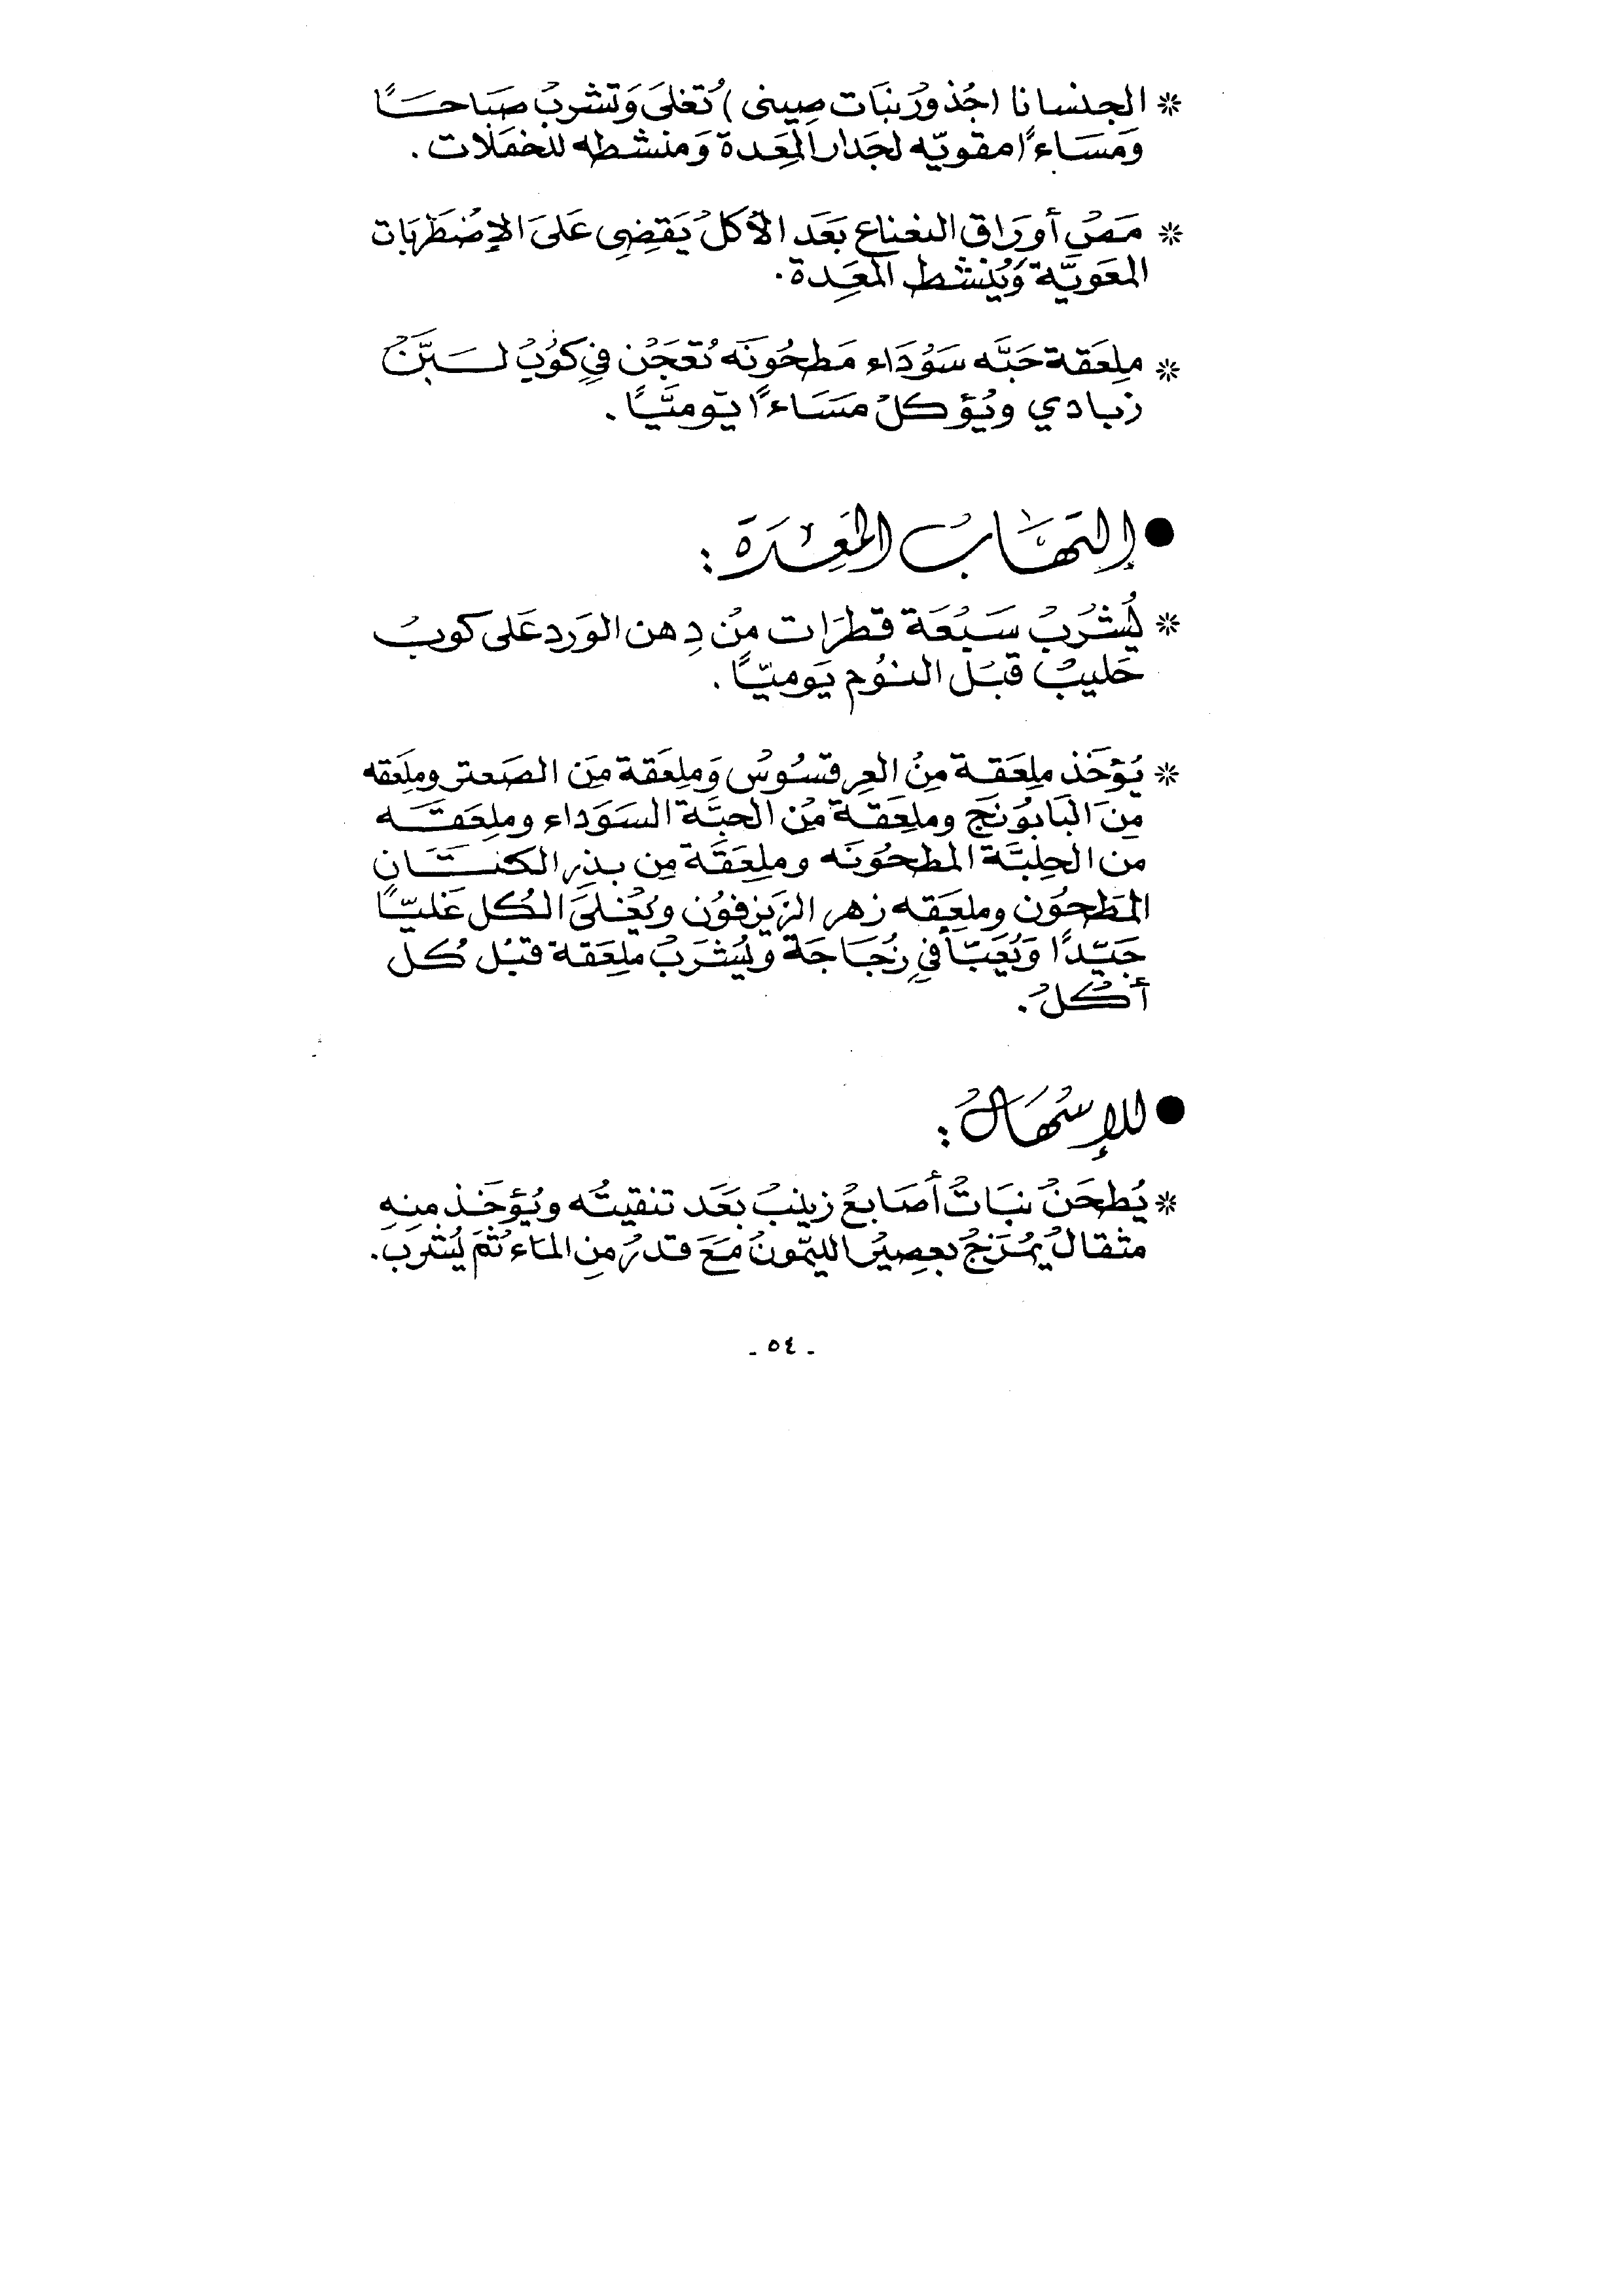 * الجنسانا (جُذورُ نبَات صِيني) تُغلىَ وَتشربْ صَبَاحـَـاً
وَمَسَـاءً مقويّه لجَدار المِعَـدة وَمنشطه للخمَلات .
* مَـصْ أورَاق النعناع بَعَد الأكلْ يَقضِي عَلىَ الإضْطَرَبَات
المعَويَّة وَيُنشط المعَـِدة .
* ملِعَقة حَبَّه سَوُدَاء مَطحُونَه تُعَجْن في كوُبْ لـبَّنْ
زبـادي ويُؤكـلْ مسَـاءً يَوميَّـاً .
● إلتهَـابْ المعِـدَة :
* يُشْرَبْ سَـبْعَة قطرَات مِنْ دِهن الوَرد عَلى كوبْ
حَليبْ قبـْل النـوْم يَوميّـاً .
* يُؤخَذ ملِعَقـة مِنْ العِرقسُوسْ وَملِعَقة مِنَ الصَعتر وملِعَقه
مِنَ البَابوُنَج وملِعَقـة مِنْ الحبَّة السَـوَداء وملِعَقـَـه
من الحِلبَّة المطحُونَه وملِعَقَة مِن بـذِر الكتـَـان
المطَحوُن وملعِـَقه زهر الزَيزفوُن ويُغـلىَ الـكُل غَليّـاً
جَيّـداً وَيُعَبّـأ في زُجَـاجَة ويُشْرَبْ ملِعَقة قبْل كُـل
أكْـلْ .
● للإسْهَـالْ :
* يُطحَنْ نبَـاتْ أصَـابعْ زينبْ بَعَـد تنقيتُه ويُؤخَـذ منـِه
مثقـالْ يُمْـزَجْ بعصِيرْ الليمّونْ مَـعَ قـدرْ مِن المـاء ثُمَ يُشْرَبْ .
- ٥٤ -